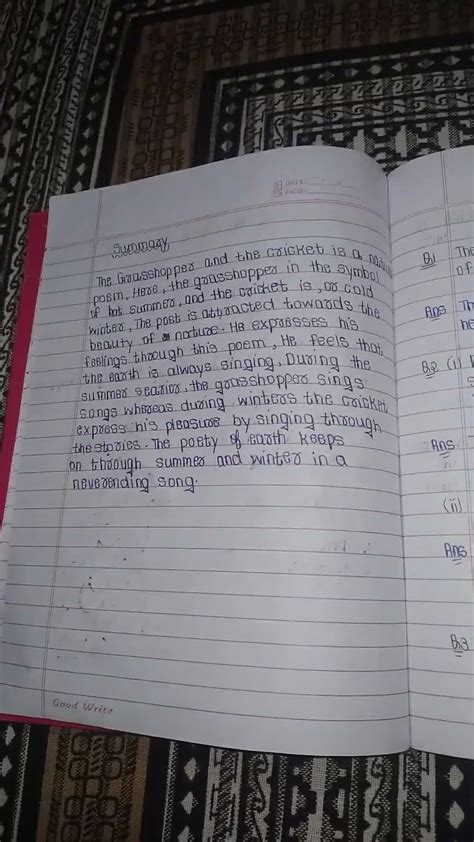 DATE: __/__/__
PAGE: ______
Summary
The Grasshopper and the cricket is a nature
poem, Here, the grasshopper in the symbol
of hot summer, and the cricket is, or cold
winter, The poet is attracted towards the
beauty of nature. He expresses his
feelings through this poem, He feels that
the earth is always singing, During the
summer searior, the grasshopper sings
songs whereas during winters the cricket
express his pleasure by singing through
the stories. The poety of earth keeps
on through summer and winter in a
neverending song.
Good Write
B1 The
of
Ans Th
B2 (i)
Ans
(ii)
Ans
B3